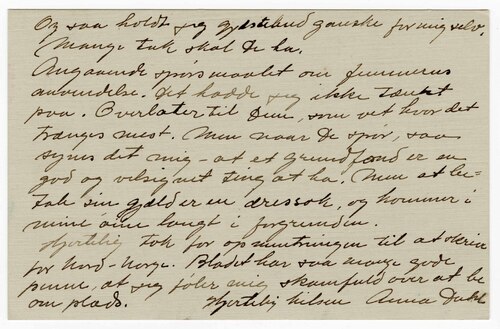 Og saa holdt jeg gjestebud ganske for mig selv.
Mange tak skal De ha.
Angaaende spörsmaalet om pennenes
anvendelse. Det hadde jeg ikke tænkt
paa. Overlater til Dem, som vet hvor det
trænges mest. Men naar De spör, saa
synes det mig – at et Grundfond er en
god og velsignet ting at ha. Men at be-
tale sin gjæld er en æressak, og kommer i
mine öine langt i forgrunden.
Hjertelig tak for opmuntringen til at skrive
for Nord-Norge. Bladet har saa mange gode
penne, at jeg föler mig skamfuld over at be
om plads. Hjertelig hilsen Anna Dahl